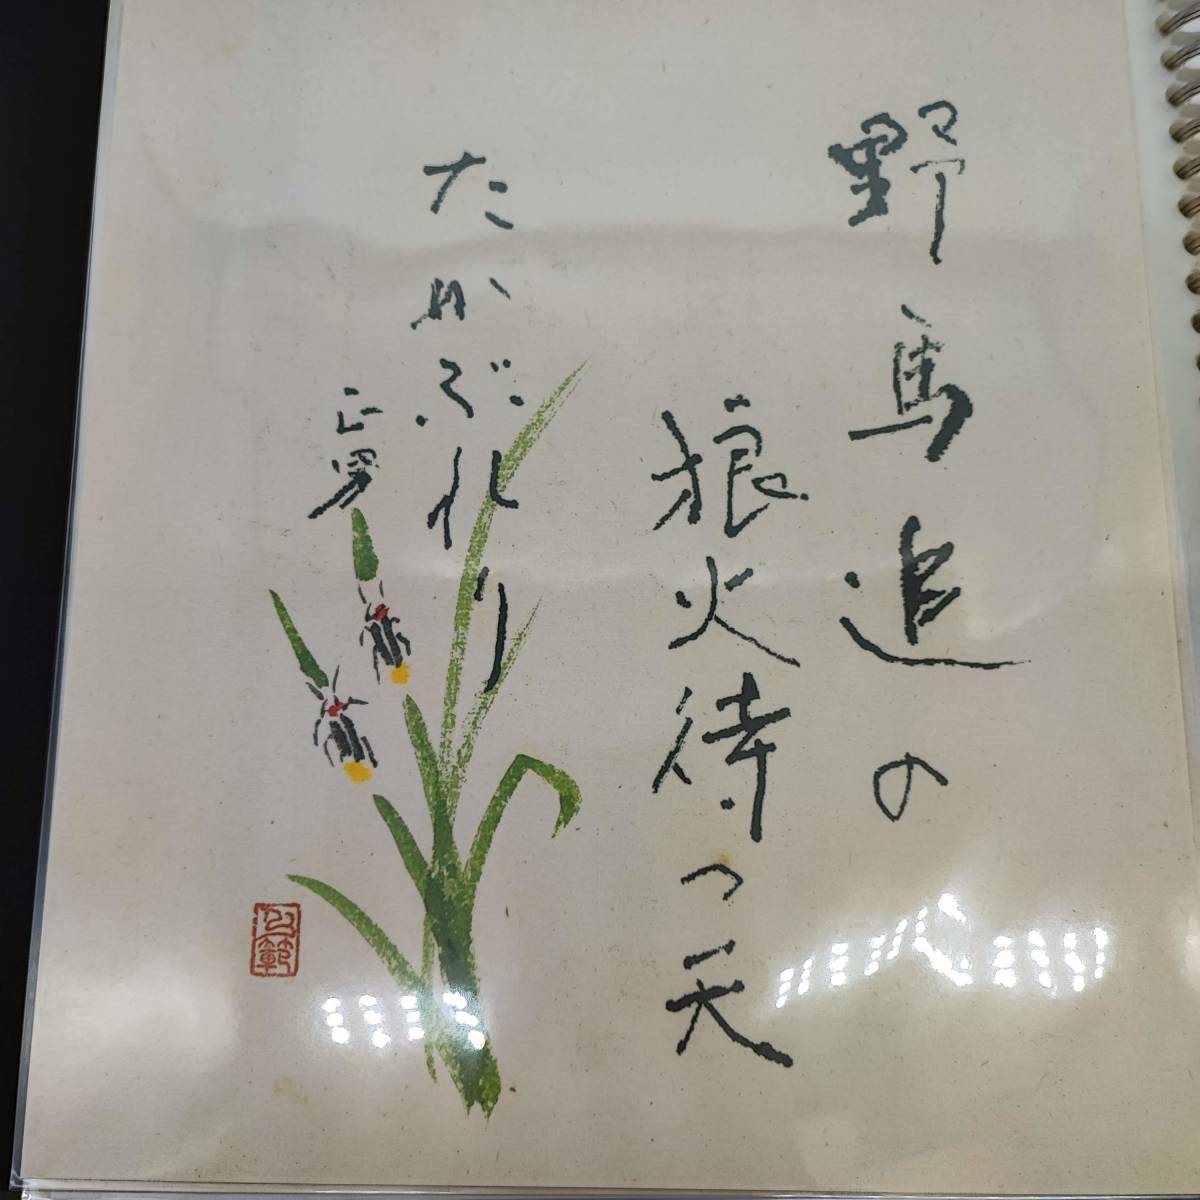 野馬追の
狼火待つ天
たかぶれり
正男